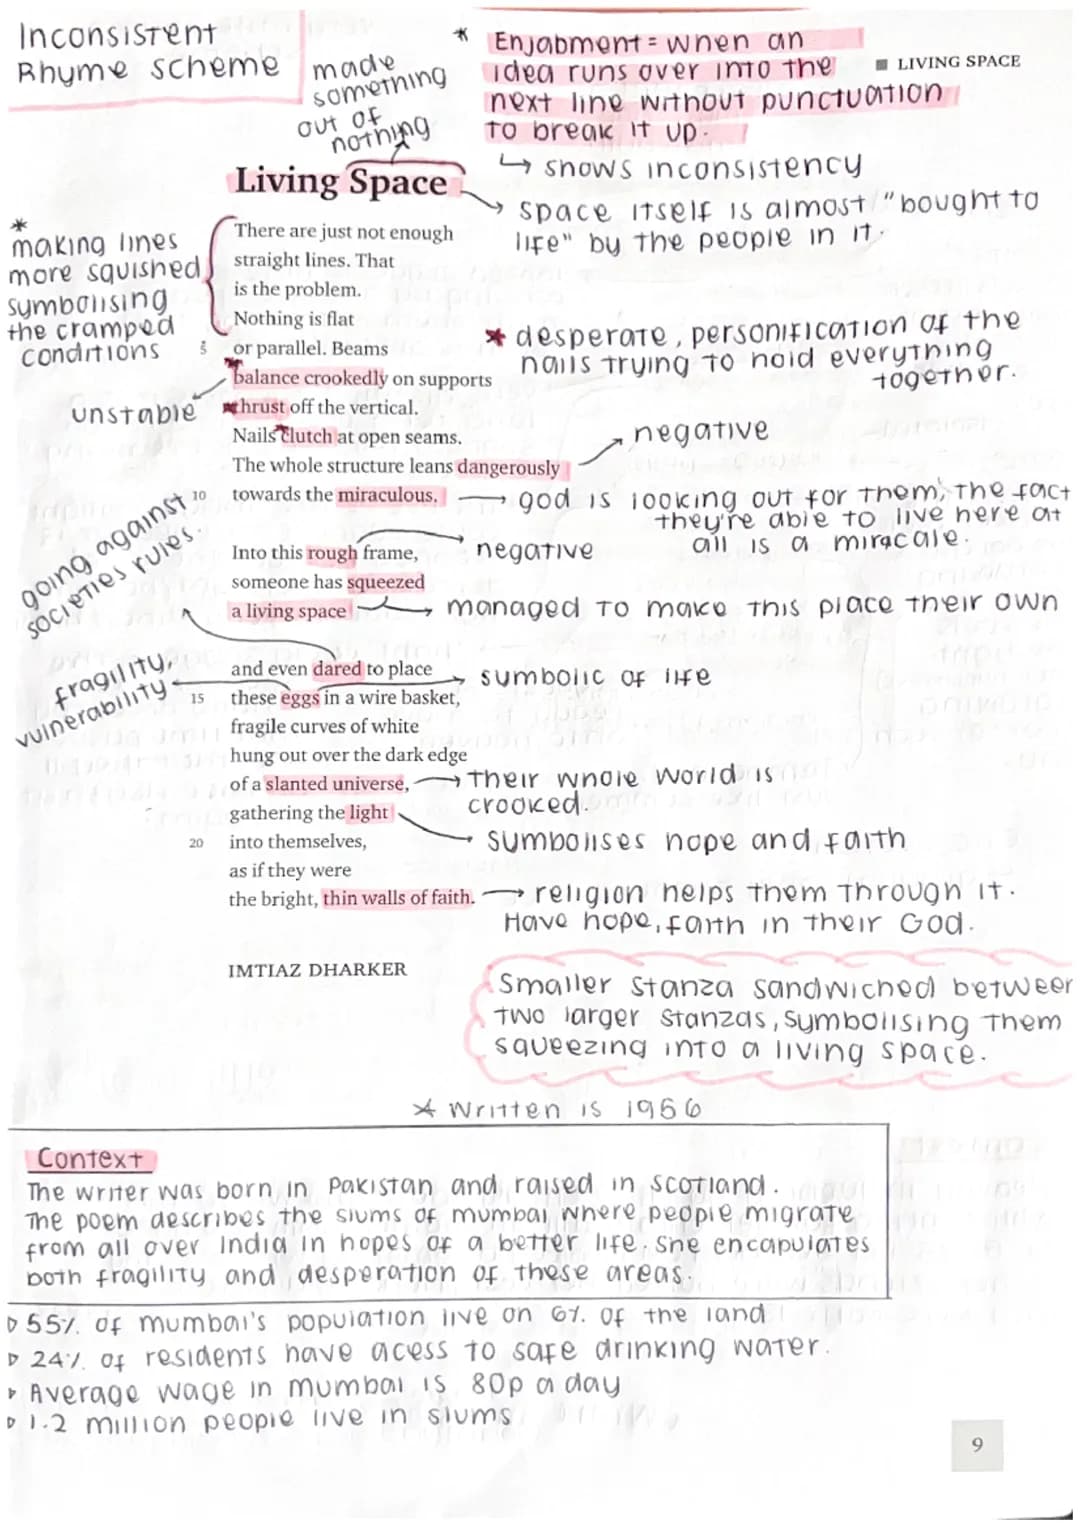 Inconsistent
Rhyme scheme
made
something
out of
nothing
* Enjabment = when an
idea runs over into the
next line without punctuation
to break it up.
↳ shows inconsistency
■ LIVING SPACE
Living Space
→ space itself is almost "bought to
life" by the people in it.
*
making lines
more squished
symbolising
the cramped
conditions
There are just not enough
straight lines. That
is the problem.
Nothing is flat
5 or parallel. Beams
balance crookedly on supports
thrust off the vertical.
Nails clutch at open seams.
The whole structure leans dangerously
10 towards the miraculous.
* desperate, personification of the
nails trying to hold everything
together.
unstable
negative
→ god is looking out for them; the fact
they're able to live here at
all is a miracale.
going against
societies rules.
Into this rough frame,
someone has squeezed
a living space
negative
managed to make this place their own
fragility,
vulnerability
and even dared to place
15 these eggs in a wire basket,
fragile curves of white
hung out over the dark edge
of a slanted universe,
gathering the light
20 into themselves,
as if they were
the bright, thin walls of faith.
symbolic of life
→ their whole world is
crooked.
symbolises hope and faith
→ religion helps them through it.
Have hope, faith in their God.
IMTIAZ DHARKER
Smaller stanza sandwiched between
two larger stanzas, symbolising them
squeezing into a living space.
* Written is 1956
Context
The writer was born in Pakistan and raised in Scotland.
The poem describes the slums of mumbai where people migrate
from all over India in hopes of a better life, she encapulates
both fragility and desperation of these areas.
▹ 55% of mumbai's population live on 6% of the land
▹ 24% of residents have acess to safe drinking water.
▹ Average wage in mumbai is 80p a day
▹ 1.2 million people live in slums
9